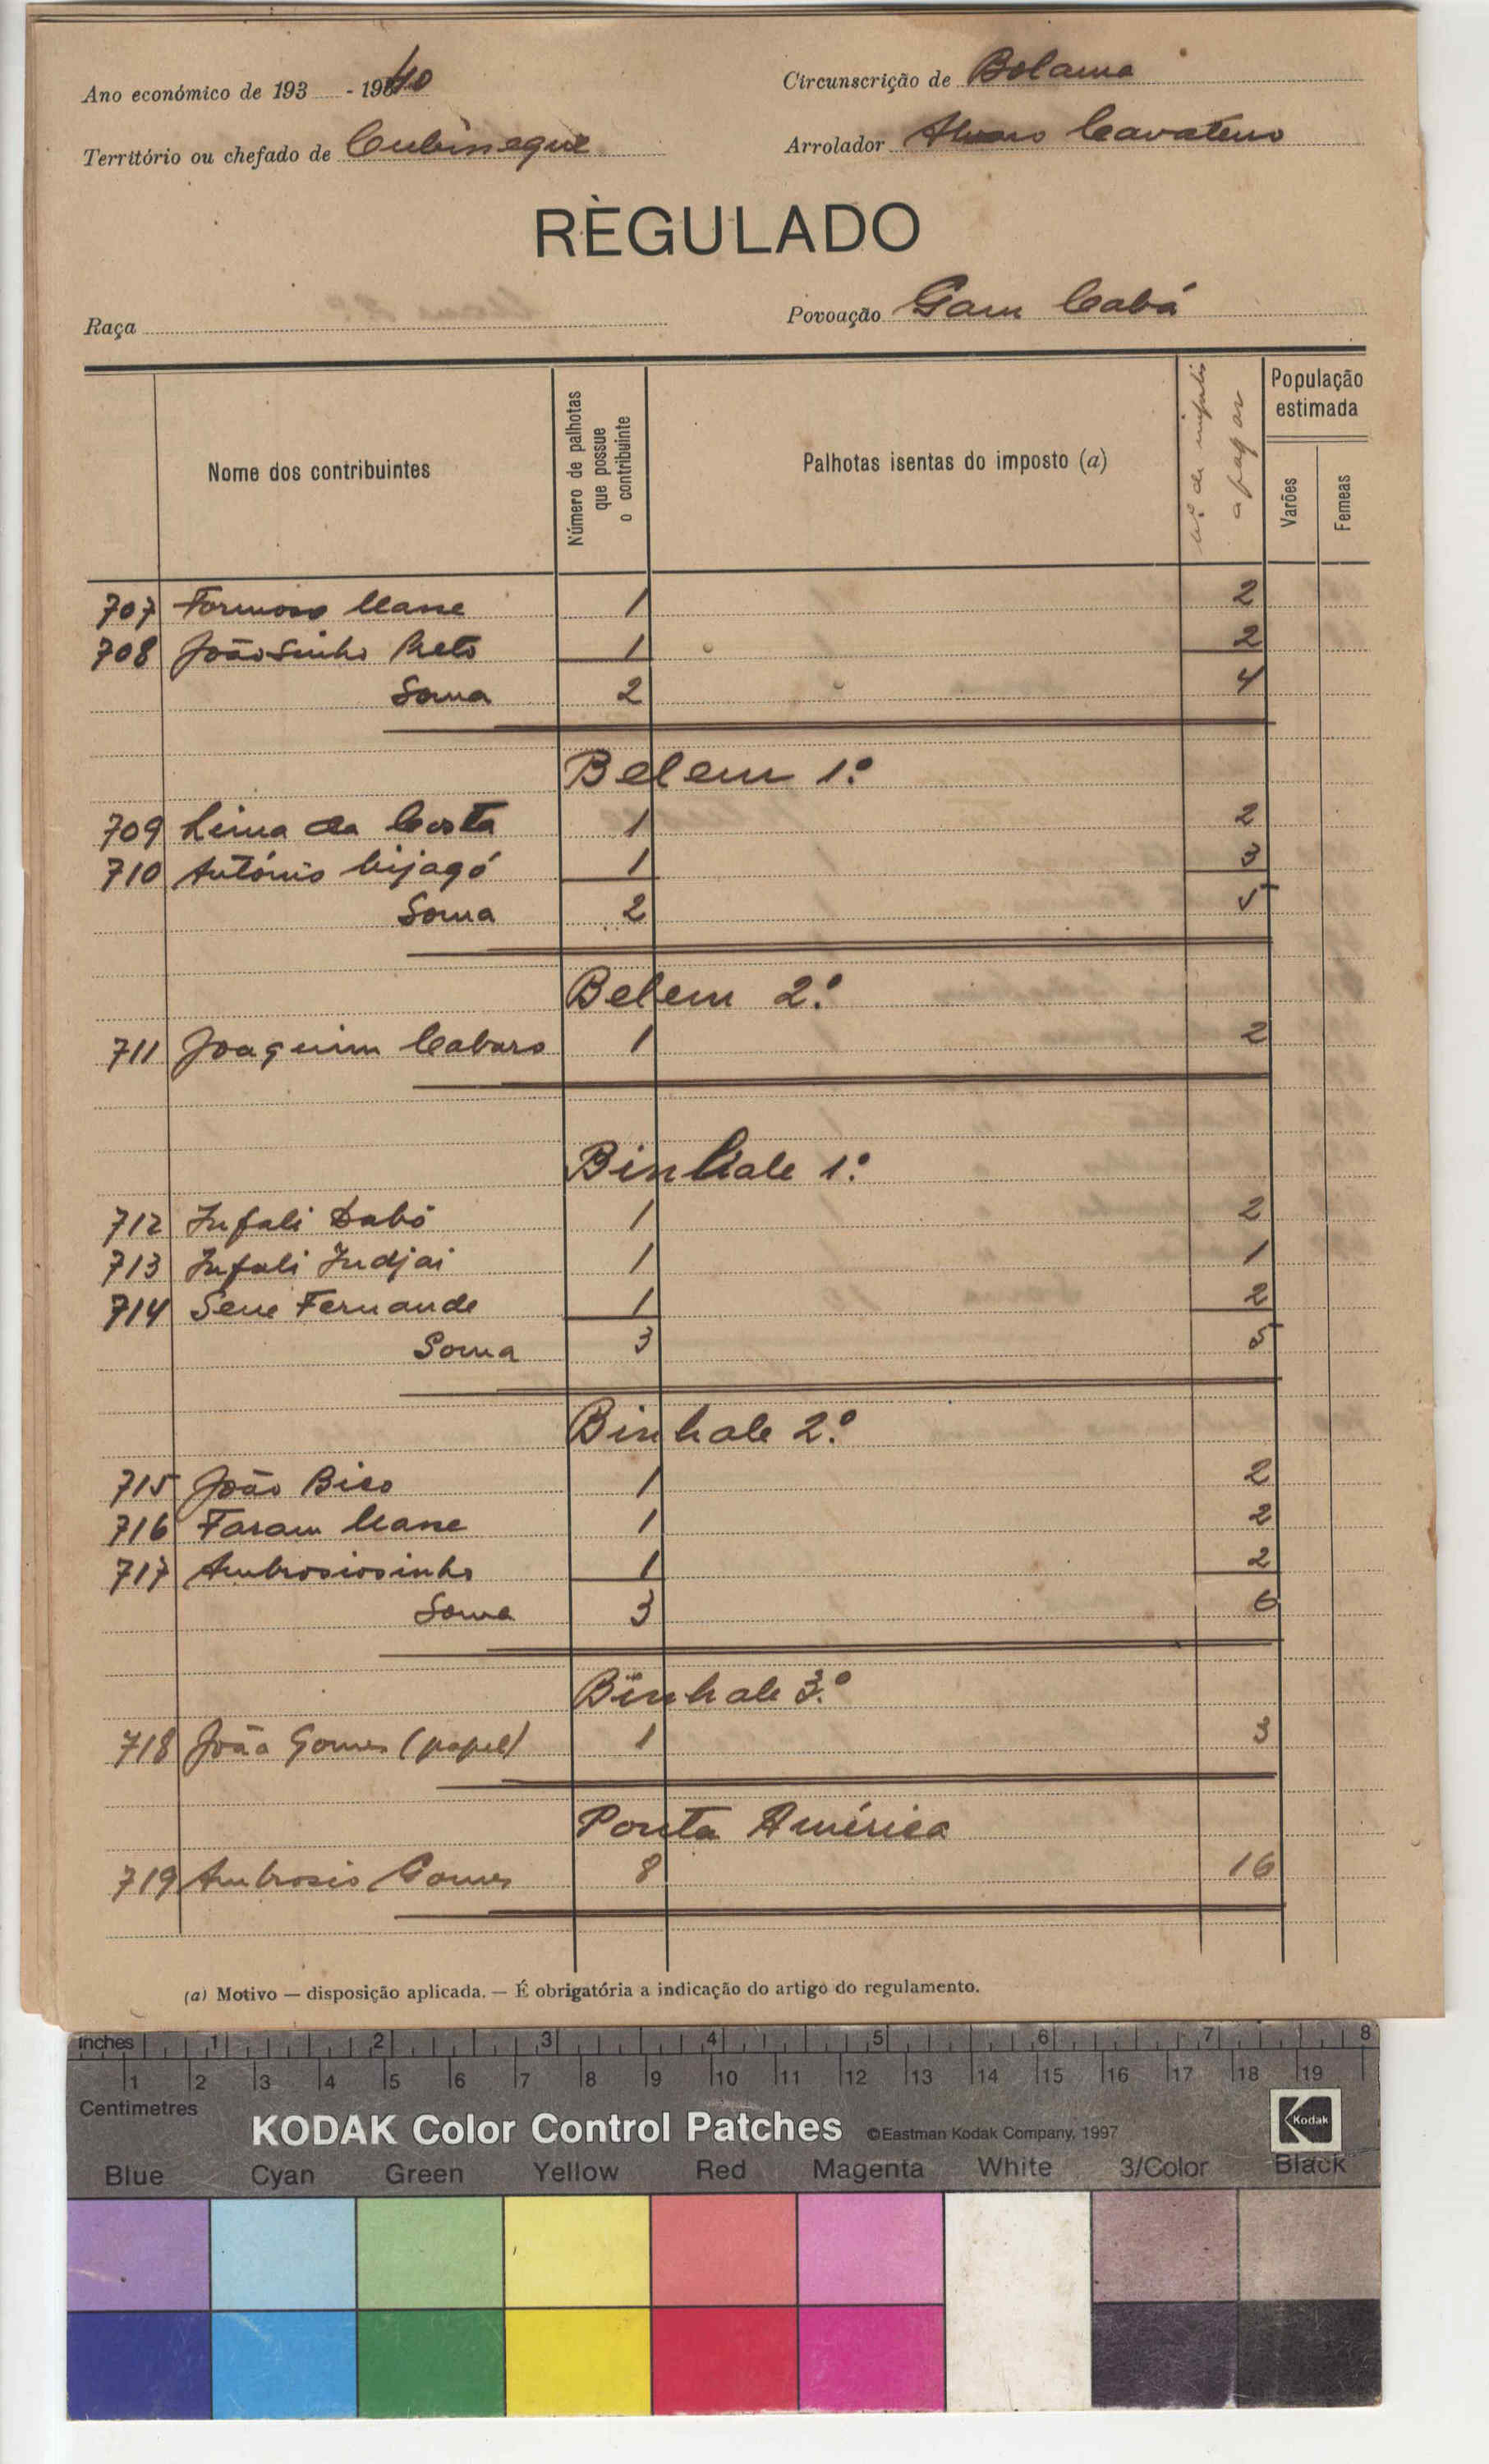 Ano económico de 193 - 1940
Circunscrição de Bolama
Território ou chefado de Cubisseque
Arrolador Alvaro
RÈGULADO
Raça
Povoação Gam Cabá
Nome dos contribuintes
Número de palhotas que possue o contribuinte
Palhotas isentas do imposto (a)
N.º de impostos a pagar
População estimada
Varões
Femeas
707 Formoso Mane 1 2
708 Joãosinho Preto 1 2
Soma 2 4
Belem 1.º
709 Lima da Costa 1 2
710 António Bijagó 1 3
Soma 2 5
Belem 2.º
711 Joaquim Cabaro 1 2
Binhale 1.º
712 Infali Dabó 1 2
713 Infali Indjai 1 1
714 Sene Fernande 1 2
Soma 3 5
Binhale 2.º
715 João Bico 1 2
716 Faram Mane 1 2
717 Ambrosiosinho 1 2
Soma 3 6
Binhale 3.º
718 João Gomes (papel) 1 3
Ponta América
719 Ambrosio Gomes 8 16
(a) Motivo — disposição aplicada. — É obrigatória a indicação do artigo do regulamento.
Inches 1 2 3 4 5 6 7 8
1 2 3 4 5 6 7 8 9 10 11 12 13 14 15 16 17 18 19
Centimetres
KODAK Color Control Patches ©Eastman Kodak Company, 1997 Kodak
Blue Cyan Green Yellow Red Magenta White 3/Color Black